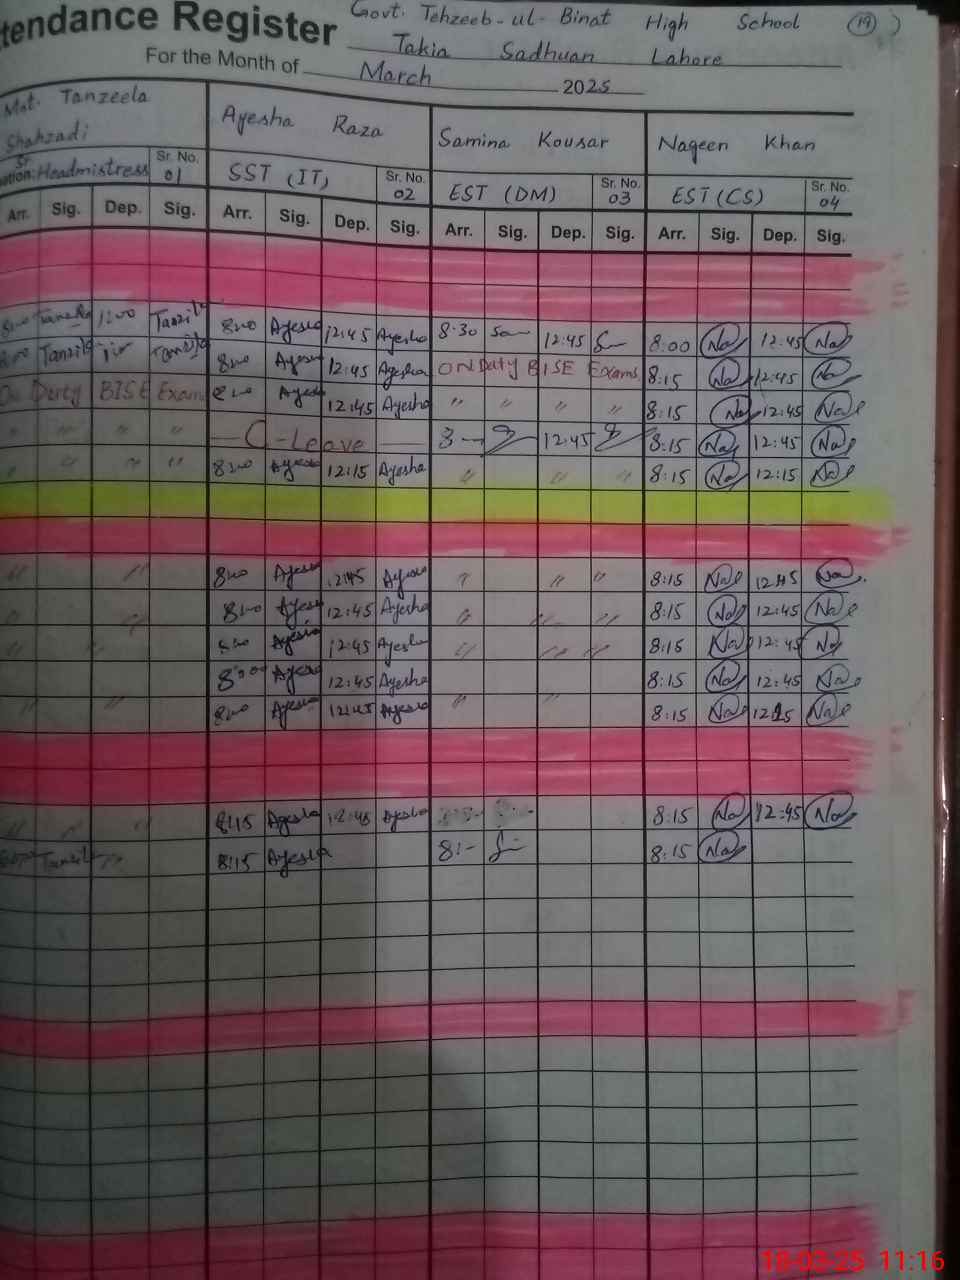 tendance Register Govt. Tehzeeb-ul-Binat High School (19)
Takia Sadhuan Lahore
For the Month of March 2025
Mst. Tanzeela Shahzadi Ayesha Raza Samina Kousar Nageen Khan
ation: Sr. Headmistress Sr. No. 01 SST (IT) Sr. No. 02 EST (DM) Sr. No. 03 EST (CS) Sr. No. 04
Arr. Sig. Dep. Sig. Arr. Sig. Dep. Sig. Arr. Sig. Dep. Sig. Arr. Sig. Dep. Sig.
1:00 Ayesha 12:45 Ayesha 8:30 12:45 8:00 Na 12:45 Na
Ayesha 12:45 Ayesha ON Duty BISE Exams 8:15 Na 12:45 Na
On Duty BISE Exam Ayesha 12:45 Ayesha " " " " 8:15 Na 12:45 Na
" " " " — C-Leave — 12:45 8:15 Na 12:45 Na
" " " " Ayesha 12:15 Ayesha " " " 8:15 Na 12:15 Na
" " Ayesha 12:45 Ayesha " " " 8:15 Na 12:45 Na
" " Ayesha 12:45 Ayesha " " " 8:15 Na 12:45 Na
" " Ayesha 12:45 Ayesha " " " 8:15 Na 12:45 Na
8:00 Ayesha 12:45 Ayesha 8:15 Na 12:45 Na
" " Ayesha 12:45 Ayesha " " 8:15 Na Na
" " " 8:15 Ayesha 12:45 Ayesha 8:15 Na 12:45 Na
8:15 Ayesha 8:15 Na
18-03-25 11:16